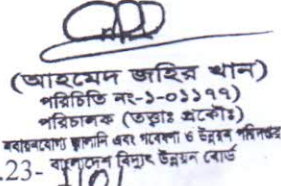 (আহমেদ জহির খান)
পরিচিতি নং-১-০১১৭৭)
পরিচালক (তত্ত্বাঃ প্রকৌঃ)
নবায়নযোগ্য জ্বালানি এবং গবেষণা ও উন্নয়ন পরিদপ্তর
বাংলাদেশ বিদ্যুৎ উন্নয়ন বোর্ড
.23-